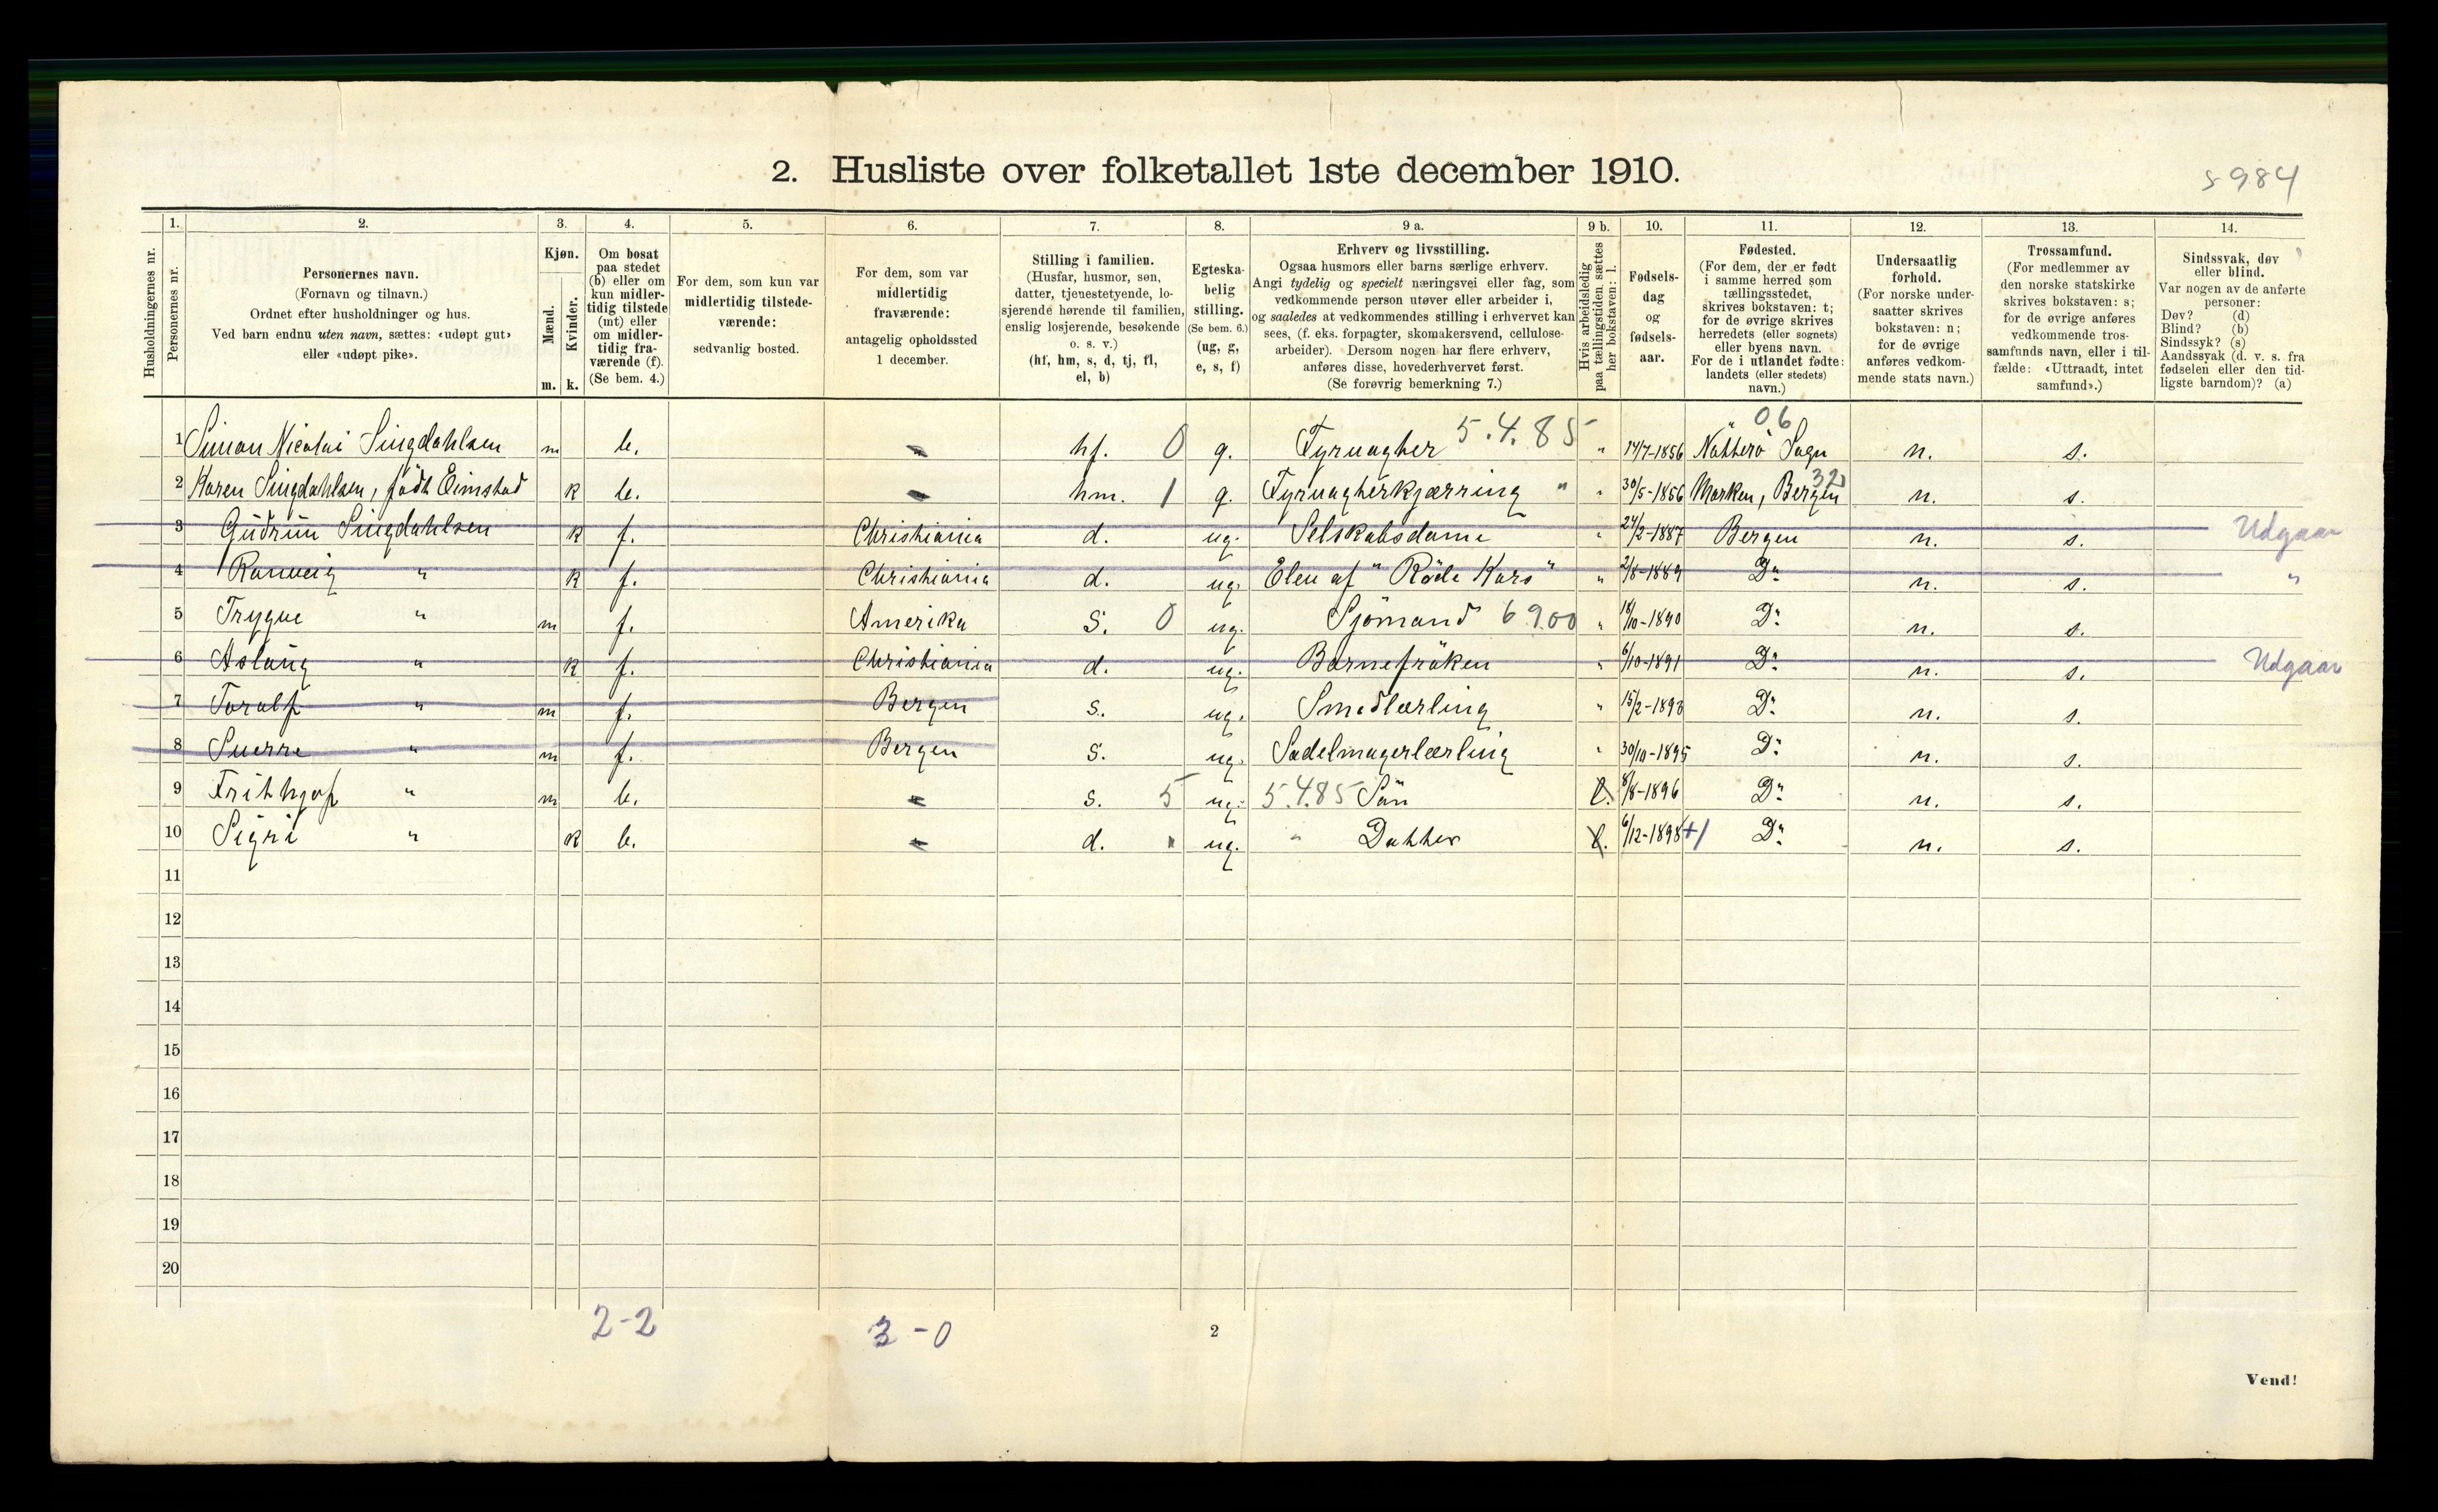 2. Husliste over folketallet 1ste december 1910.
5984
1. 2. 3. 4. 5. 6. 7. 8. 9 a. 9 b. 10. 11. 12. 13. 14.
Husholdningernes nr.
Personernes nr.
Personernes navn.
(Fornavn og tilnavn.)
Ordnet efter husholdninger og hus.
Ved barn endnu uten navn, sættes: «udøpt gut»
eller «udøpt pike».
Kjøn.
Mænd.
Kvinder.
m. k.
Om bosat
paa stedet
(b) eller om
kun midler-
tidig tilstede
(mt) eller
om midler-
tidig fra-
værende (f).
(Se bem. 4.)
For dem, som kun var
midlertidig tilstede-
værende:
sedvanlig bosted.
For dem, som var
midlertidig
fraværende:
antagelig opholdssted
1 december.
Stilling i familien.
(Husfar, husmor, søn,
datter, tjenestetyende, lo-
sjerende hørende til familien,
enslig losjerende, besøkende
o. s. v.)
(hf, hm, s, d, tj, fl,
el, b)
Egteska-
belig
stilling.
(Se bem. 6.)
(ug, g,
e, s, f)
Erhverv og livsstilling.
Ogsaa husmors eller barns særlige erhverv.
Angi tydelig og specielt næringsvei eller fag, som
vedkommende person utøver eller arbeider i,
og saaledes at vedkommendes stilling i erhvervet kan
sees, (f. eks. forpagter, skomakersvend, cellulose-
arbeider). Dersom nogen har flere erhverv,
anføres disse, hovederhvervet først.
(Se forøvrig bemerkning 7.)
Hvis arbeidsledig
paa tællingstiden, sættes
her bokstaven: l.
Fødsels-
dag
og
fødsels-
aar.
Fødested.
(For dem, der er født
i samme herred som
tællingsstedet,
skrives bokstaven: t;
for de øvrige skrives
herredets (eller sognets)
eller byens navn.
For de i utlandet fødte:
landets (eller stedets)
navn.)
Undersaatlig
forhold.
(For norske under-
saatter skrives
bokstaven: n;
for de øvrige
anføres vedkom-
mende stats navn.)
Trossamfund.
(For medlemmer av
den norske statskirke
skrives bokstaven: s;
for de øvrige anføres
vedkommende tros-
samfunds navn, eller i til-
fælde: «Uttraadt, intet
samfund».)
Sindssvak, døv
eller blind.
Var nogen av de anførte
personer:
Døv? (d)
Blind? (b)
Sindssyk? (s)
Aandssvak (d. v. s. fra
fødselen eller den tid-
ligste barndom)? (a)
06
1 Simon Nicolai Singdahlsen m b. hf. 0 g. Fyrvagter 5.4.85 " 14/7-1856 Nøtterö Sogn n. s.
2 Karen Singdahlsen, född Eimstad k b. hm. 1 g. Fyrvagterkjærring " " 30/5-1856 Marken, Bergen 32 n. s.
3 Gudrun Singdahlsen k f. Christiania d. ug. Selskabsdame " 24/2-1887 Bergen n. s. Udgaar
4 Ranveig " k f. Christiania d. ug. Elev af "Röde Kors" " 2/8-1889 Do n. s. "
5 Trygve " m f. Amerika s. 0 ug. Sjömand 6 9.00 " 18/10-1890 Do n. s.
6 Aslaug " k f. Christiania d. ug. Barnefröken " 6/10-1891 Do n. s. Udgaar
7 Toralf " m f. Bergen s. ug. Smedlærling " 15/2-1893 Do n. s.
8 Sverre " m f. Bergen s. ug. Sadelmagerlærling " 30/10-1895 Do n. s.
9 Frithjof " m b. s. 5 ug. 5.4.85 Sön l. 8/8-1896 Do n. s.
10 Sigri " k b. d. " ug. " Datter l. 6/12-1898 +1 Do n. s.
11
12
13
14
15
16
17
18
19
20
2-2
3-0
2
Vend!